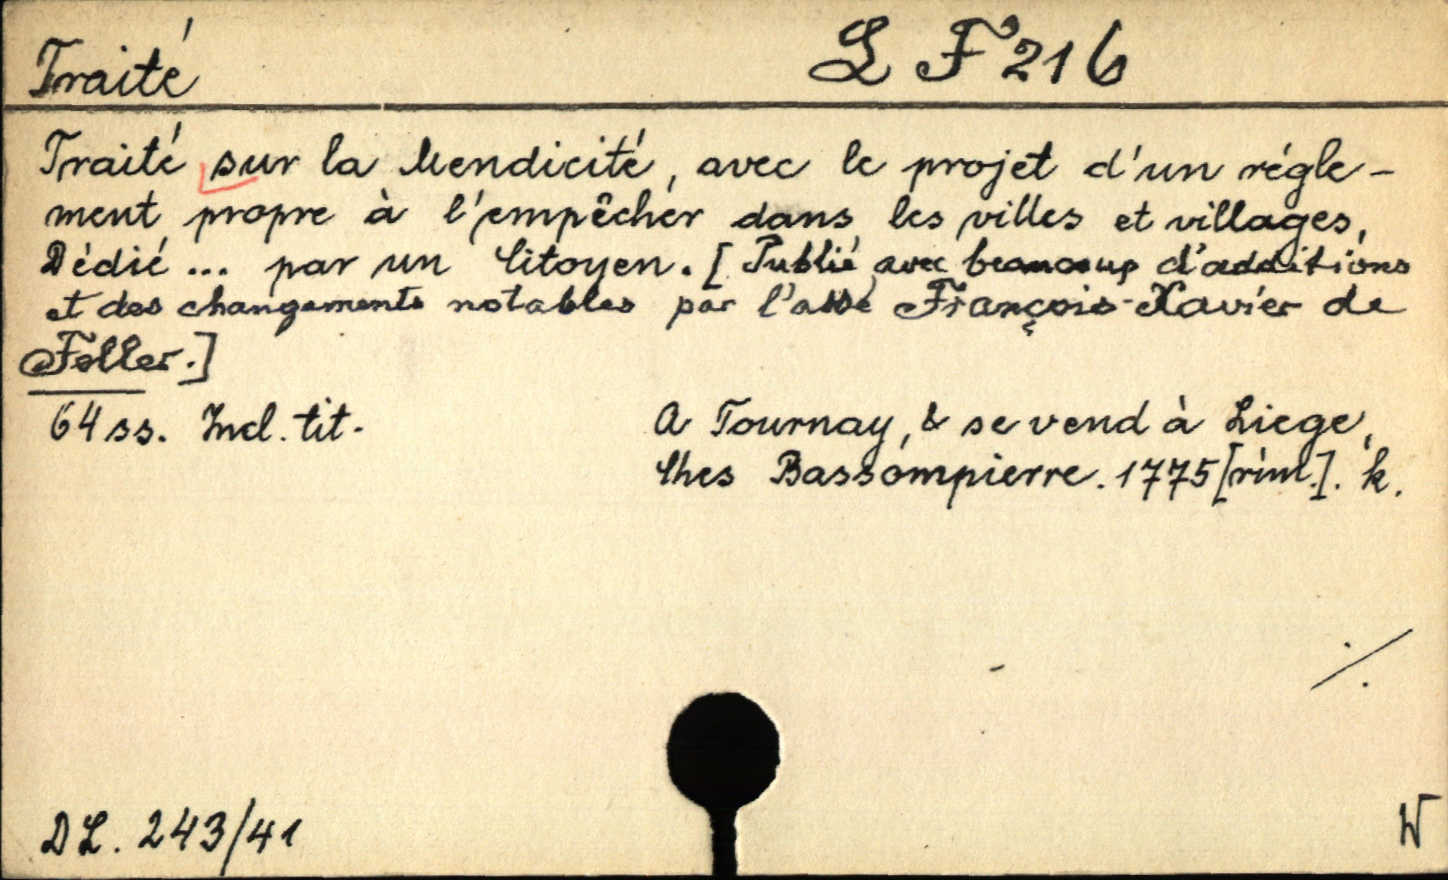 Traité
L F 216
Traité sur la Mendicité, avec le projet d'un régle-
ment propre à l'empêcher dans les villes et villages,
Dédié ... par un Citoyen. [Publié avec beaucoup d'additions
et des changements notables par l'abbé François-Xavier de
Feller.]
64 ss. Incl. tit.
A Tournay, & se vend à Liege,
Ches Bassompierre. 1775 [rim.]. k.
./.
DL. 243/41
W